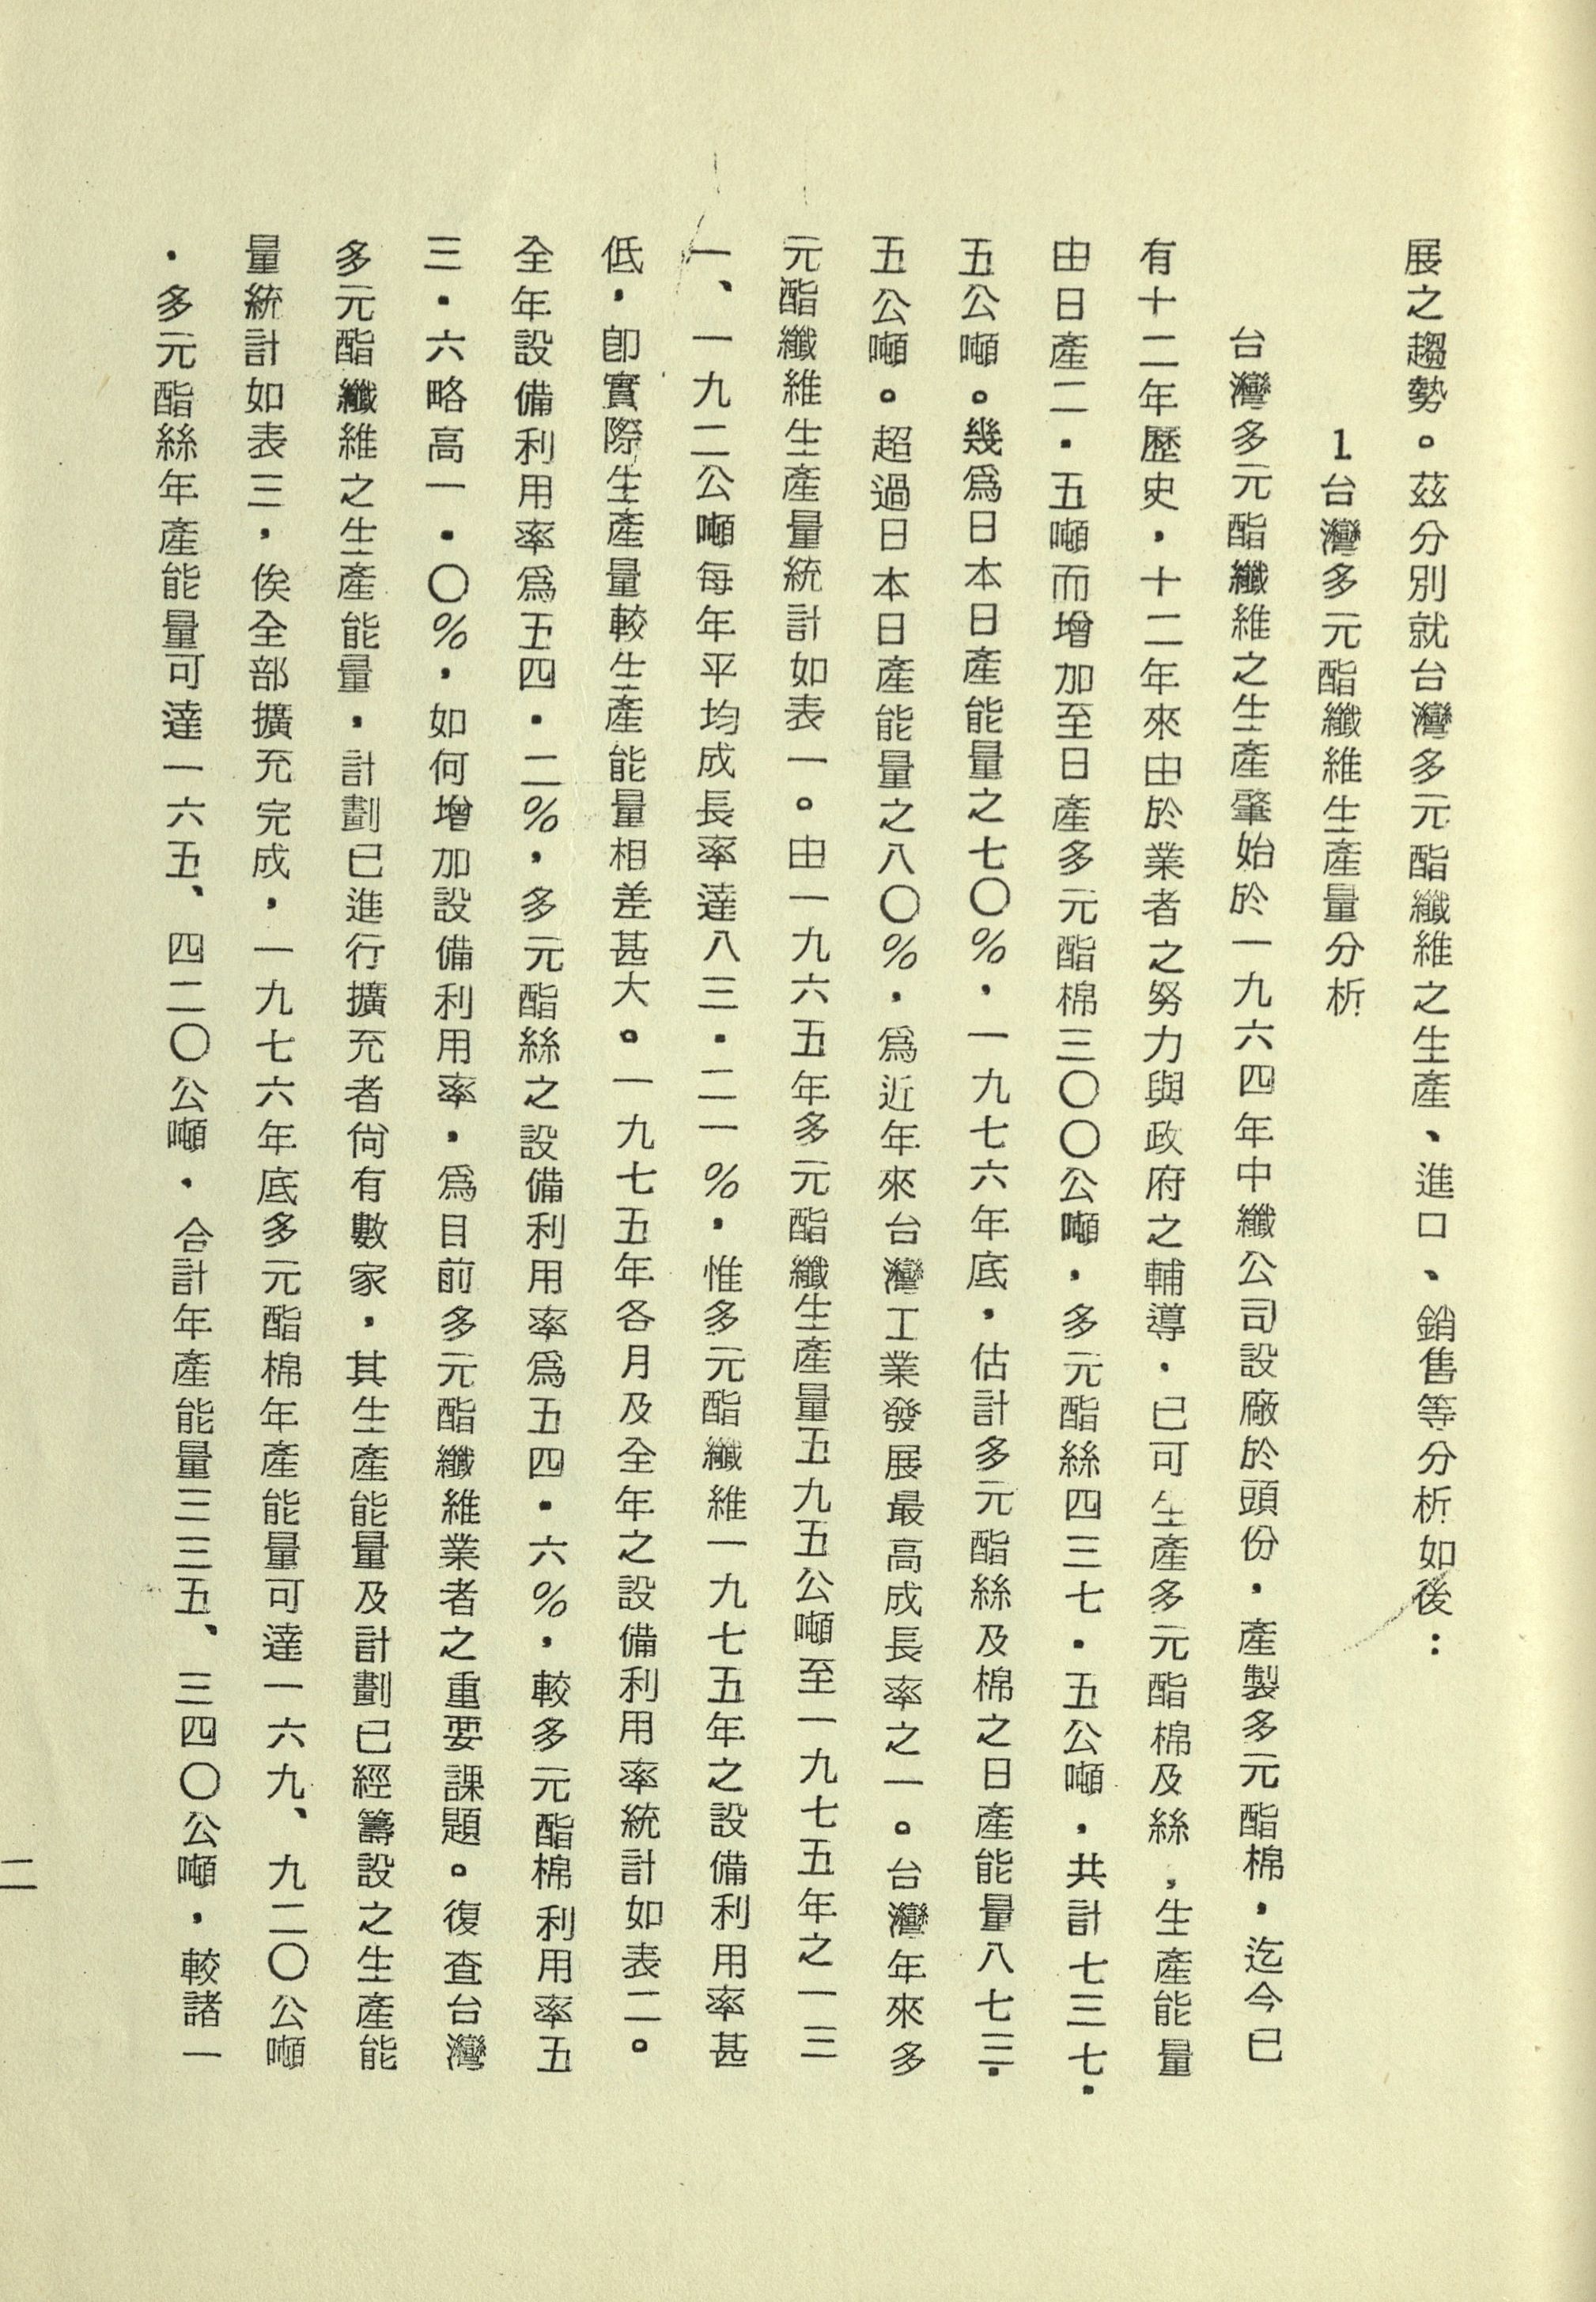 展之趨勢。茲分別就台灣多元酯纖維之生產、進口、銷售等分析如後：
1台灣多元酯纖維生產量分析
台灣多元酯纖維之生產肇始於一九六四年中纖公司設廠於頭份，產製多元酯棉，迄今已
有十二年歷史，十二年來由於業者之努力與政府之輔導，已可生產多元酯棉及絲，生產能量
由日產二．五噸而增加至日產多元酯棉三〇〇公噸，多元酯絲四三七．五公噸，共計七三七．
五公噸。幾為日本日產能量之七〇%，一九七六年底，估計多元酯絲及棉之日產能量八七三．
五公噸。超過日本日產能量之八〇%，為近年來台灣工業發展最高成長率之一。台灣年來多
元酯纖維生產量統計如表一。由一九六五年多元酯纖生產量五九五公噸至一九七五年之一三
一、一九二公噸每年平均成長率達八三．二一%，惟多元酯纖維一九七五年之設備利用率甚
低，即實際生產量較生產能量相差甚大。一九七五年各月及全年之設備利用率統計如表二。
全年設備利用率為五四．二%，多元酯絲之設備利用率為五四．六%，較多元酯棉利用率五
三．六略高一．〇%，如何增加設備利用率，為目前多元酯纖維業者之重要課題。復查台灣
多元酯纖維之生產能量，計劃已進行擴充者尚有數家，其生產能量及計劃已經籌設之生產能
量統計如表三，俟全部擴充完成，一九七六年底多元酯棉年產能量可達一六九、九二〇公噸
，多元酯絲年產能量可達一六五、四二〇公噸，合計年產能量三三五、三四〇公噸，較諸一
二